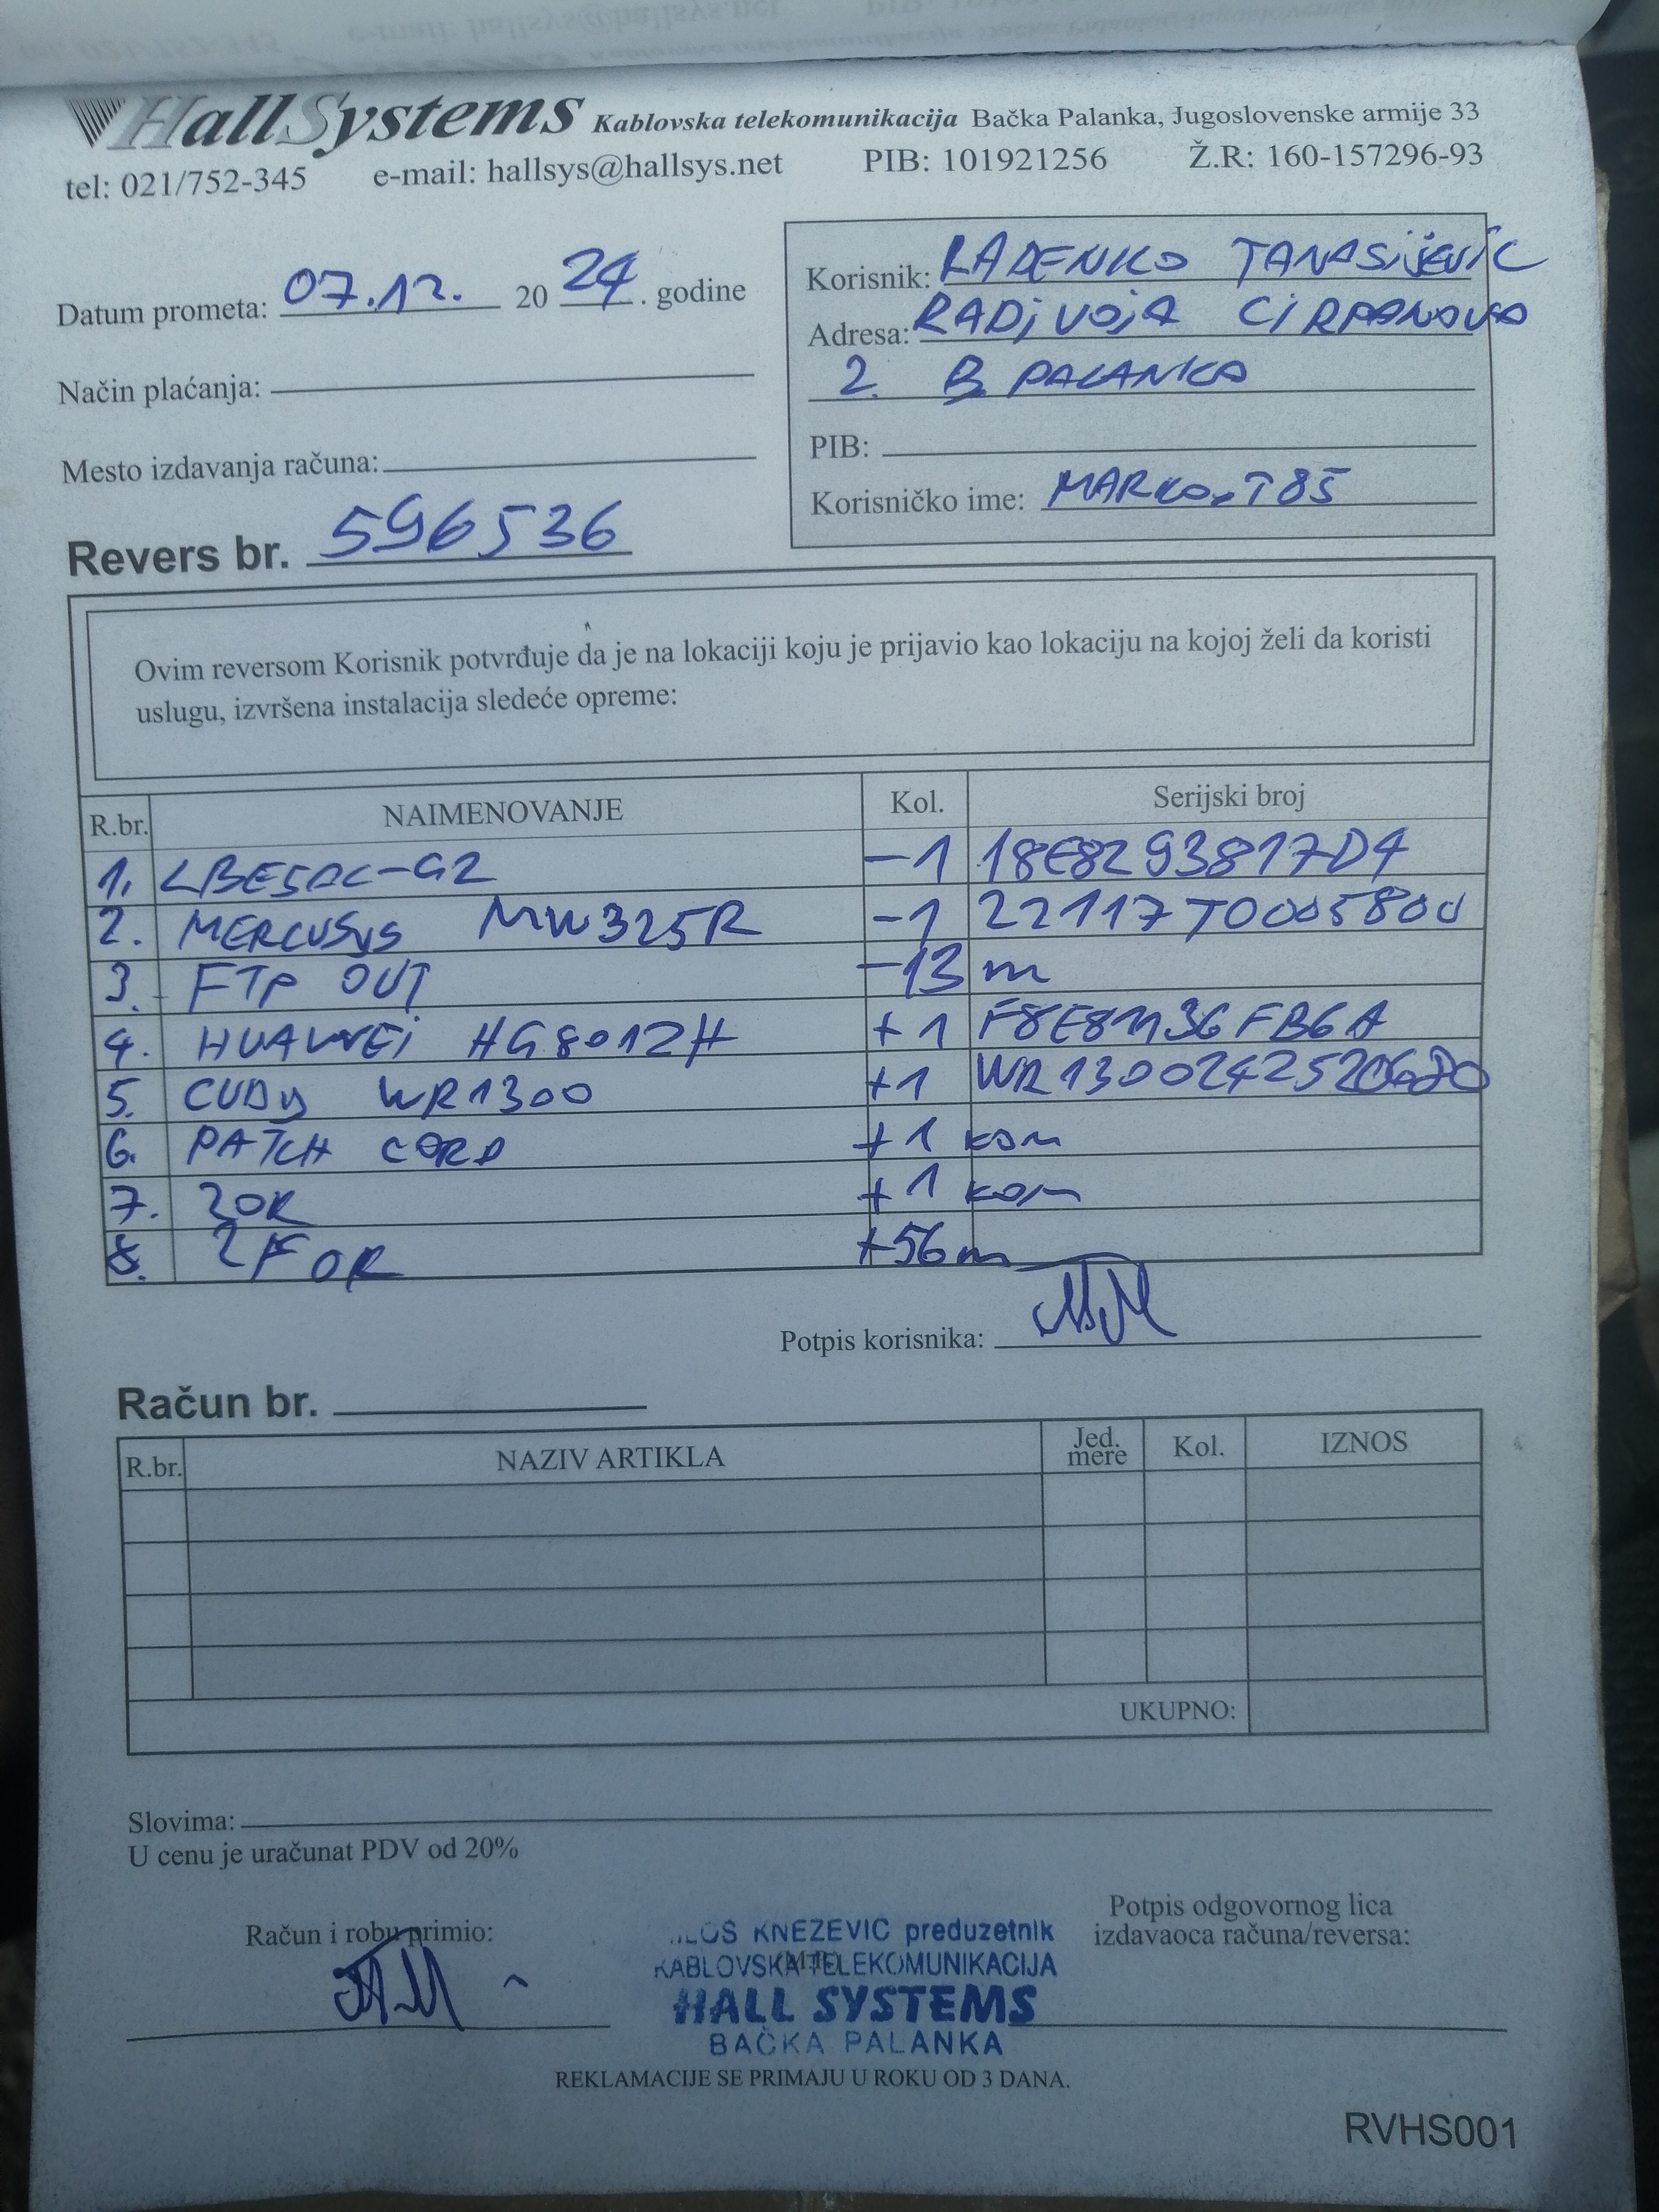 HallSystems Kablovska telekomunikacija Bačka Palanka, Jugoslovenske armije 33
tel: 021/752-345 e-mail: hallsys@hallsys.net PIB: 101921256 Ž.R: 160-157296-93
Datum prometa: 07.12. 20 24. godine
Način plaćanja:
Mesto izdavanja računa:
Revers br. 596536
Korisnik: RADENKO TANASIJEVIĆ
Adresa: RADIVOJA ĆIRPANOVA
2. B PALANKA
PIB:
Korisničko ime: MARKO.T85
Ovim reversom Korisnik potvrđuje da je na lokaciji koju je prijavio kao lokaciju na kojoj želi da koristi
uslugu, izvršena instalacija sledeće opreme:
R.br. NAIMENOVANJE Kol. Serijski broj
1. LBE5AC-G2 -1 18E8293817D4
2. MERCUSYS MW325R -1 22117T0005800
3. FTP OUT -13 m
4. HUAWEI HG8012H +1
5. CUDY WR1300 +1
6. PATCH CORD +1 kom
7. ZOK +1 kom
8. 2F OK +56m
Potpis korisnika:
Račun br.
R.br. NAZIV ARTIKLA Jed. mere Kol. IZNOS
UKUPNO:
Slovima:
U cenu je uračunat PDV od 20%
Račun i robu primio:
Potpis odgovornog lica
izdavaoca računa/reversa:
KNEZEVIC preduzetnik
KABLOVSKA TELEKOMUNIKACIJA
HALL SYSTEMS
BAČKA PALANKA
REKLAMACIJE SE PRIMAJU U ROKU OD 3 DANA.
RVHS001